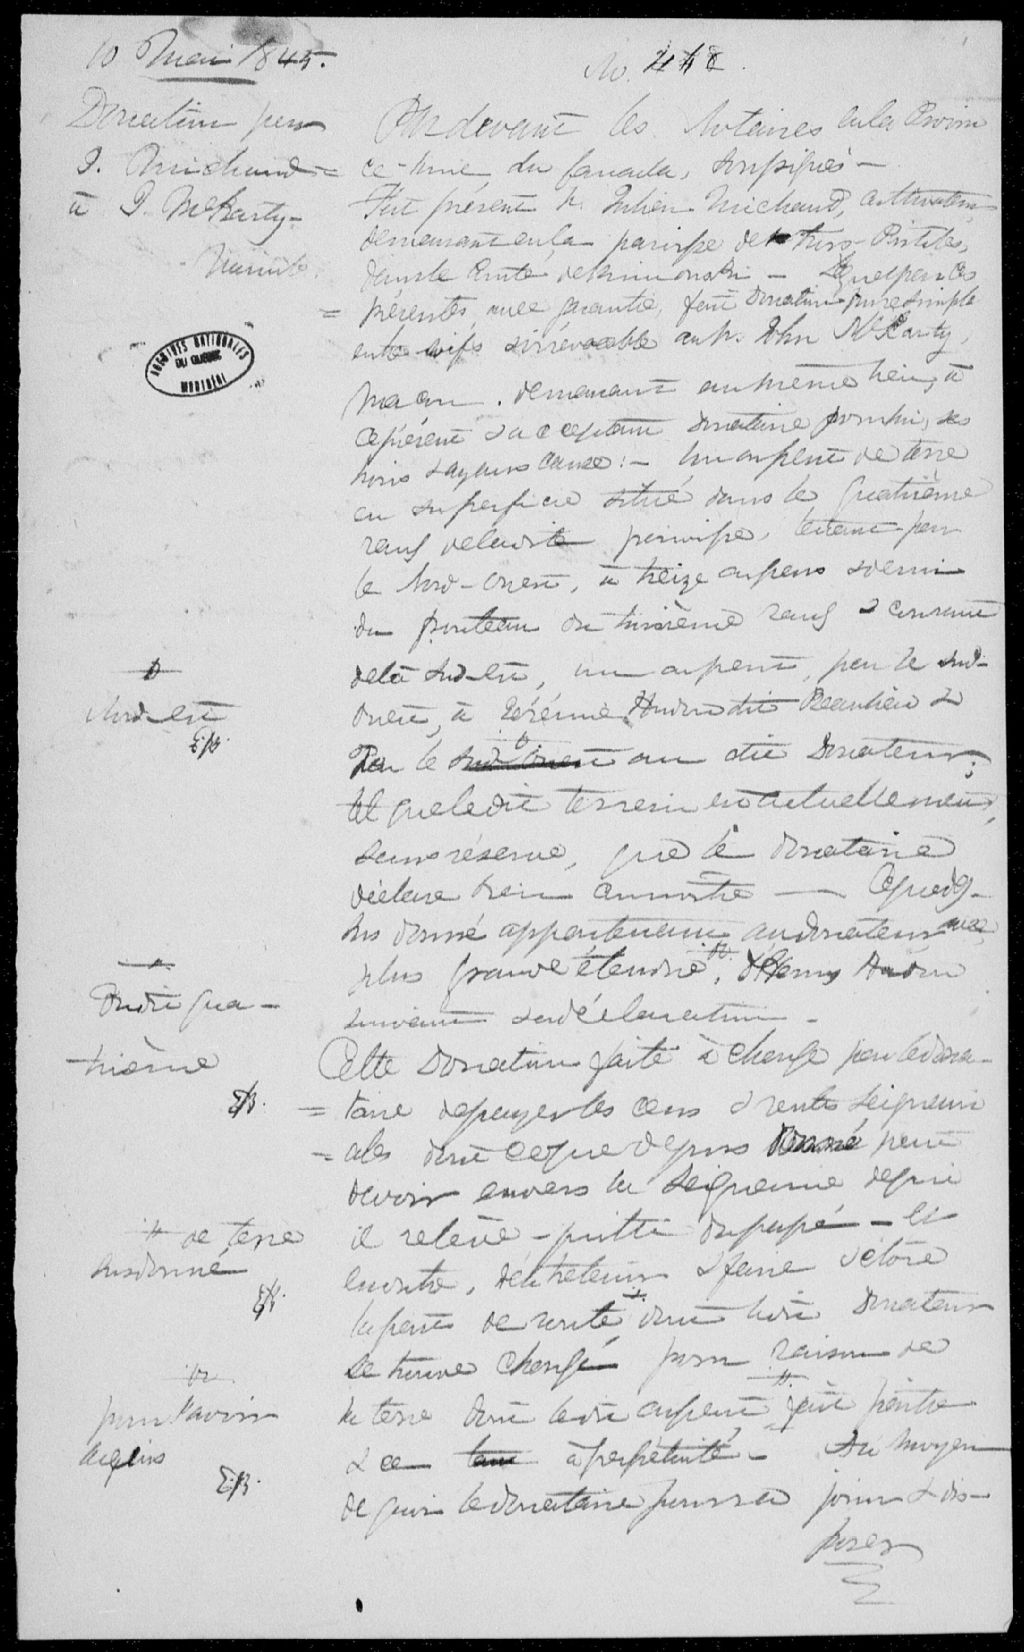 10 Mai 1845.
No. 418.
Donation par
J. Michaud
à J. McKarty
Minute.
ARCHIVES NATIONALES
DU QUÉBEC
MONTRÉAL
Par devant les Notaires en la Provin
= ce-Unie du Canada, soussignés —
Fut présent Sr. Julien Michaud, cultivateur
demeurant en la paroisse de Trois-Pistoles,
dans le Comté de Rimouski — Lequel par ces
= présentes, avec garantie, fait Donation pure simple
entre vifs & irrévocable au Sr. John McKarty,
Maçon, demeurant au même lieu, à
ce présent & acceptant Donataire pour lui, ses
hoirs & ayans cause :— Un arpent de terre
en superficie situé dans le quatrième
rang de ladite paroisse, tenant par
le Nord-Ouest, à treize arpens & demi
du poteau du troisième rang & courant
de là Sud-est, un arpent, par le sud-
ouest, à Jérémie Audin dit Beaulieu &
Par le Sud Ouest au dit Donateur;
Nord-est
E.B.
tel que ledit terrein est actuellement,
sans réserve, que le Donataire
déclare bien connoître — Ce que des-
sus donné appartenant au donateur avec
plus grande étendue, d'Henry Audin
suivant sa déclaration —
Dudit qua-
trième
E.B.
Cette Donation faite à charge par le dona-
= taire de payer les cens & rentes seigneuri
= ales dont ce que dessus donné peut
devoir envers la Seigneurie de qui
il relève — quitte du passé — et
en outre, d'entretenir & faire & clôre
la part de route dont ledit Donateur
se trouve chargé pour raison de
la terre dont ledit arpent fait partie
& ce à perpétuité — Au moyen
de quoi le donataire pourra jouir & dis-
poser
de terre
susdonné
E.B.
pour l'avoir
acquis
E.B.